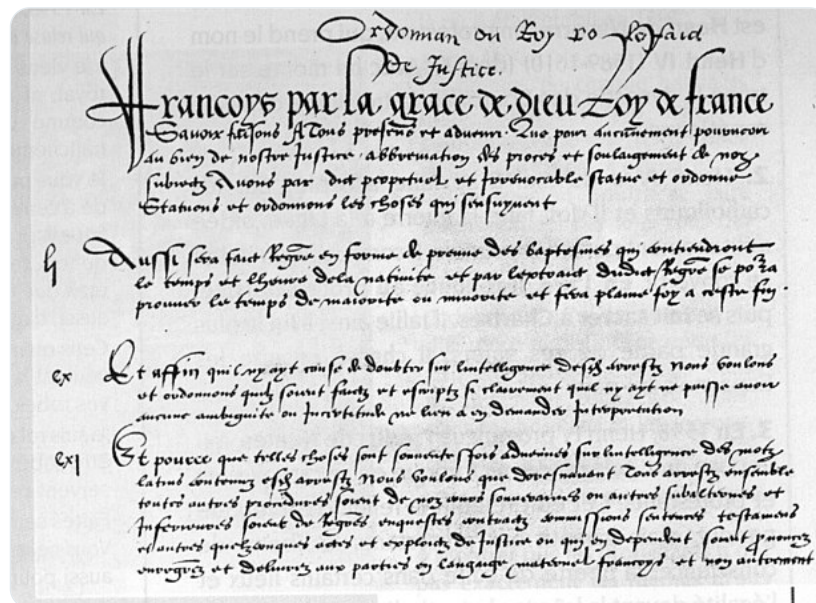 Ordonnan du Roy
De Justice.
Francoys par la grace de dieu Roy de france
Savoir faisons A Tous presens et advenir. Que pour aucunement pourveoir
au bien de nostre Justice. abbreviation des proces et soulagement de noz
subiectz Avons par edict perpetuel et Irrevocable statue et ordonne
Statuons et ordonnons les choses qui sensuyvent
Aussi sera faict Regre en forme de preuve des baptesmes qui contiendront
le temps et lheure de la nativite et par lextraict dudict Regre se porra
prouver le temps de maiorite ou minorite et fera plaine foy a ceste fin.
ex Et affin quil ny ayt cause de doubter sur lintelligence desdictz arrestz nous voulons
et ordonnons quilz soient faictz et escriptz si clairement quil ny ayt ne puisse avoir
aucune ambiguite ou Incertitude ne lieu a en demander Interpretation
exi Et pource que telles choses sont souventesfoys advenues sur lintelligence des motz
latins contenuz esdictz arrestz Nous Voulons que doresnavant Tous arrestz ensemble
toutes autres procedures soient de noz cours souveraines ou autres subalternes et
Inferieures soient de Regres enquestes contractz commissions sentences testamens
et autres quelzconques actes et exploictz de Justice ou qui en dependent soient prononcez
enregrez et delivrez aux parties en langage maternel francoys et non autrement